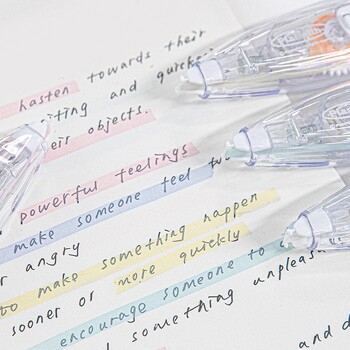 hasten towards their
iting and quickly
eir objects.
powerful feelings
make someone feel
r angry
to make something happen
sooner or more quickly
encourage someone to
something unpleas
and d